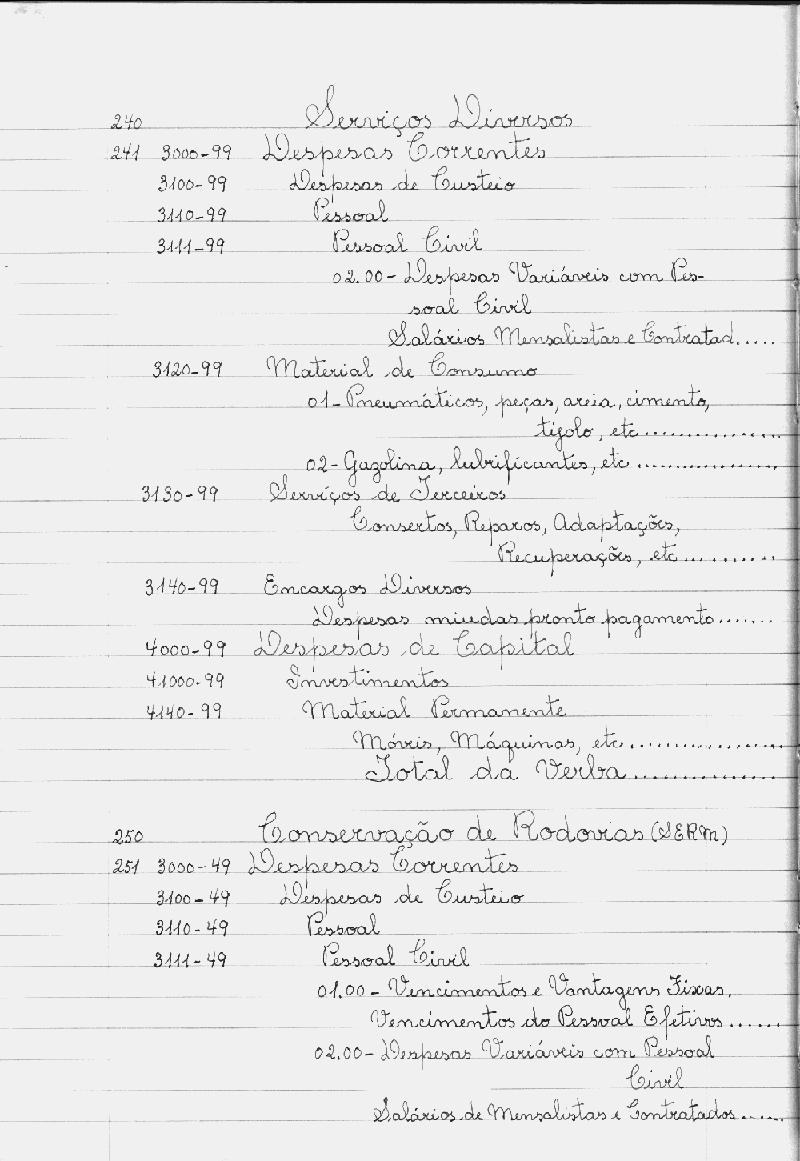 240 Serviços Diversos
241 3000-99 Despesas Correntes
3100-99 Despesas de Custeio
3110-99 Pessoal
3111-99 Pessoal Civil
02.00- Despesas Variáveis com Pes-
soal Civil
Salários Mensalistas e Contratad.....
3120-99 Material de Consumo
01-Pneumáticos, peças, areia, cimento,
tijolo, etc................
02- Gazolina, lubrificantes, etc................
3130-99 Serviços de Terceiros
Consertos, Reparos, Adaptações,
Recuperações, etc...........
3140-99 Encargos Diversos
Despesas miudas pronto pagamento.......
4000-99 Despesas de Capital
41000-99 Investimentos
4140-99 Material Permanente
Móveis, Máquinas, etc.................
Total da Verba................
250 Conservação de Rodovias (SERM)
251 3000-49 Despesas Correntes
3100-49 Despesas de Custeio
3110-49 Pessoal
3111-49 Pessoal Civil
01.00- Vencimentos e Vantagens Fixas.
Vencimentos do Pessoal Efetivos......
02.00- Despesas Variáveis com Pessoal
Civil
Salários de Mensalistas e Contratados......